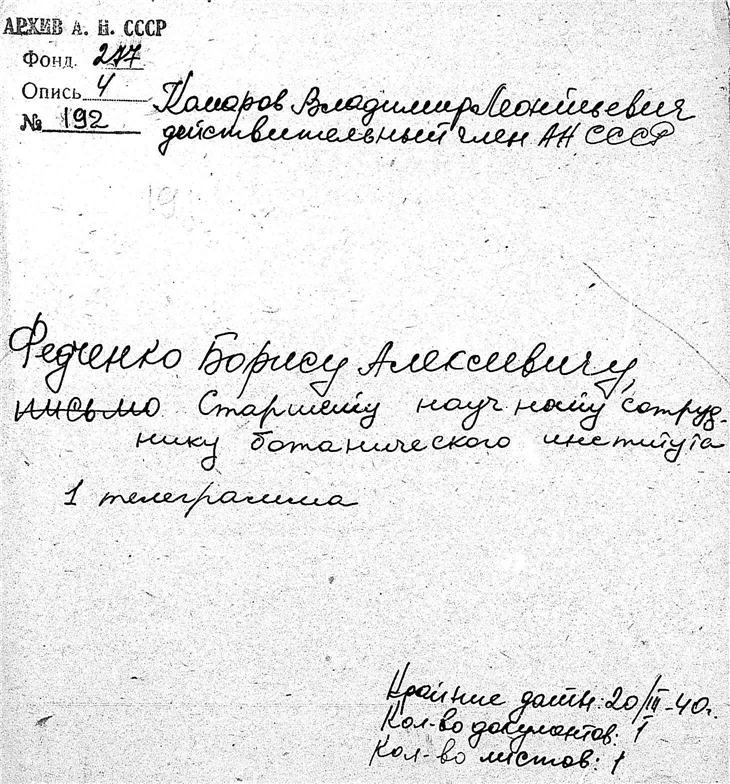 АРХИВ А. Н. СССР
Фонд 277
Опись 4
№ 192
Комаров Владимир Леонтьевич
действительный член АН СССР
Федченко Борису Алексеевичу,
письмо Старшему научному сотруд-
нику ботанического института
1 телеграмма
Крайние даты: 20/III-40г.
Кол-во документов: 1
Кол-во листов: 1